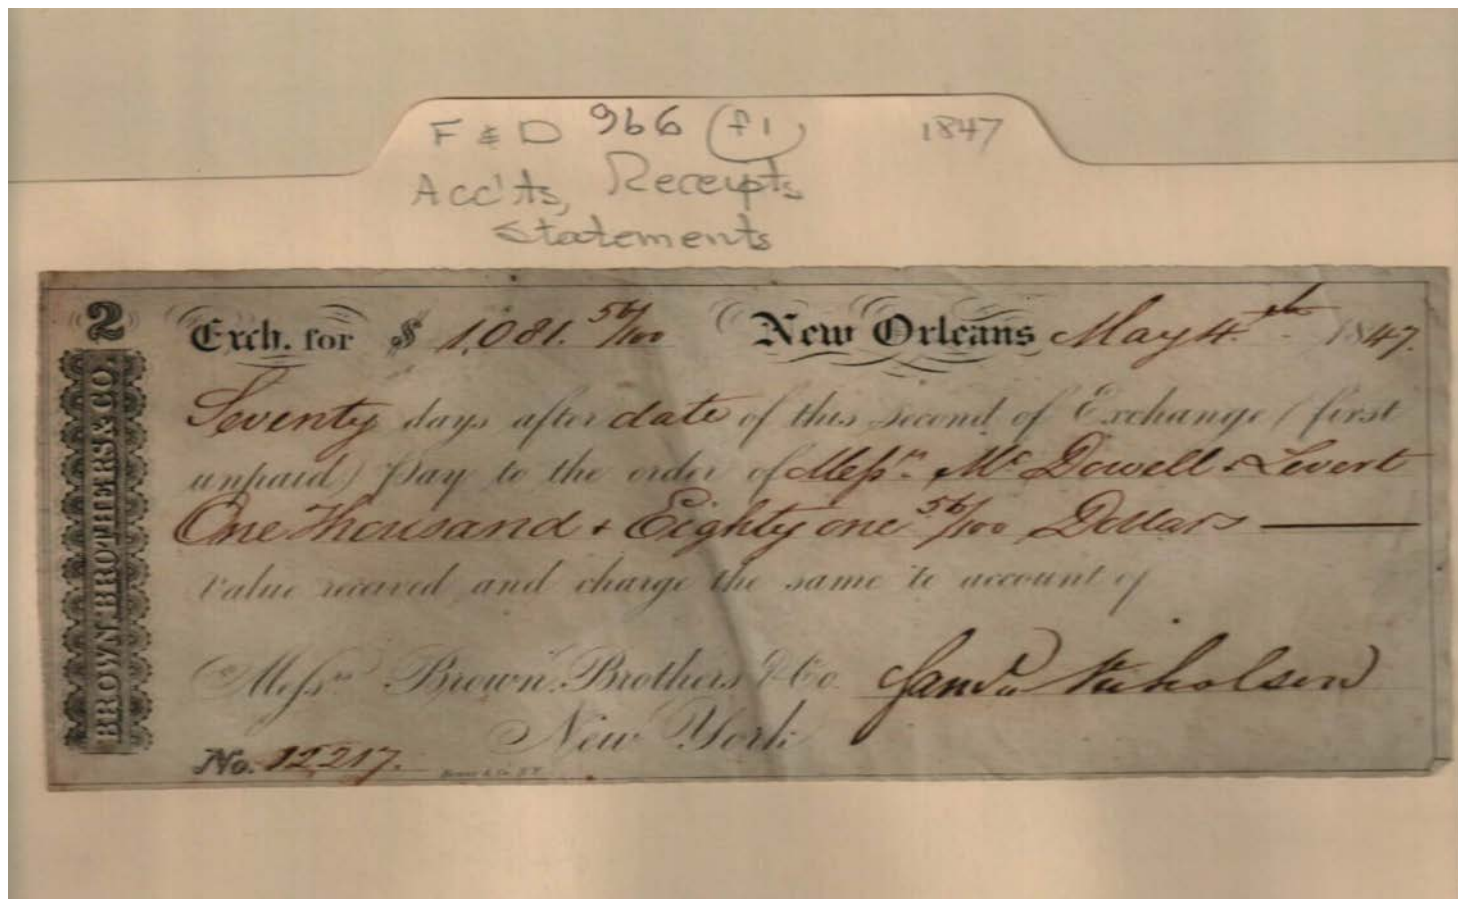 F & D 966 (f1) 1847
Acc'ts, Receipts
Statements
2 Exch. for $ 1,081. 56/100 New Orleans May 4th 1847.
BROWN BROTHERS & CO.
Seventy days after date of this second of Exchange (first
unpaid) Pay to the order of Messrs. Mc Dowell & Levert
One Thousand & Eighty one 56/100 Dollars
Value received and charge the same to account of
Messrs Brown Brothers & Co. Nicholson
New York
No. 12217.